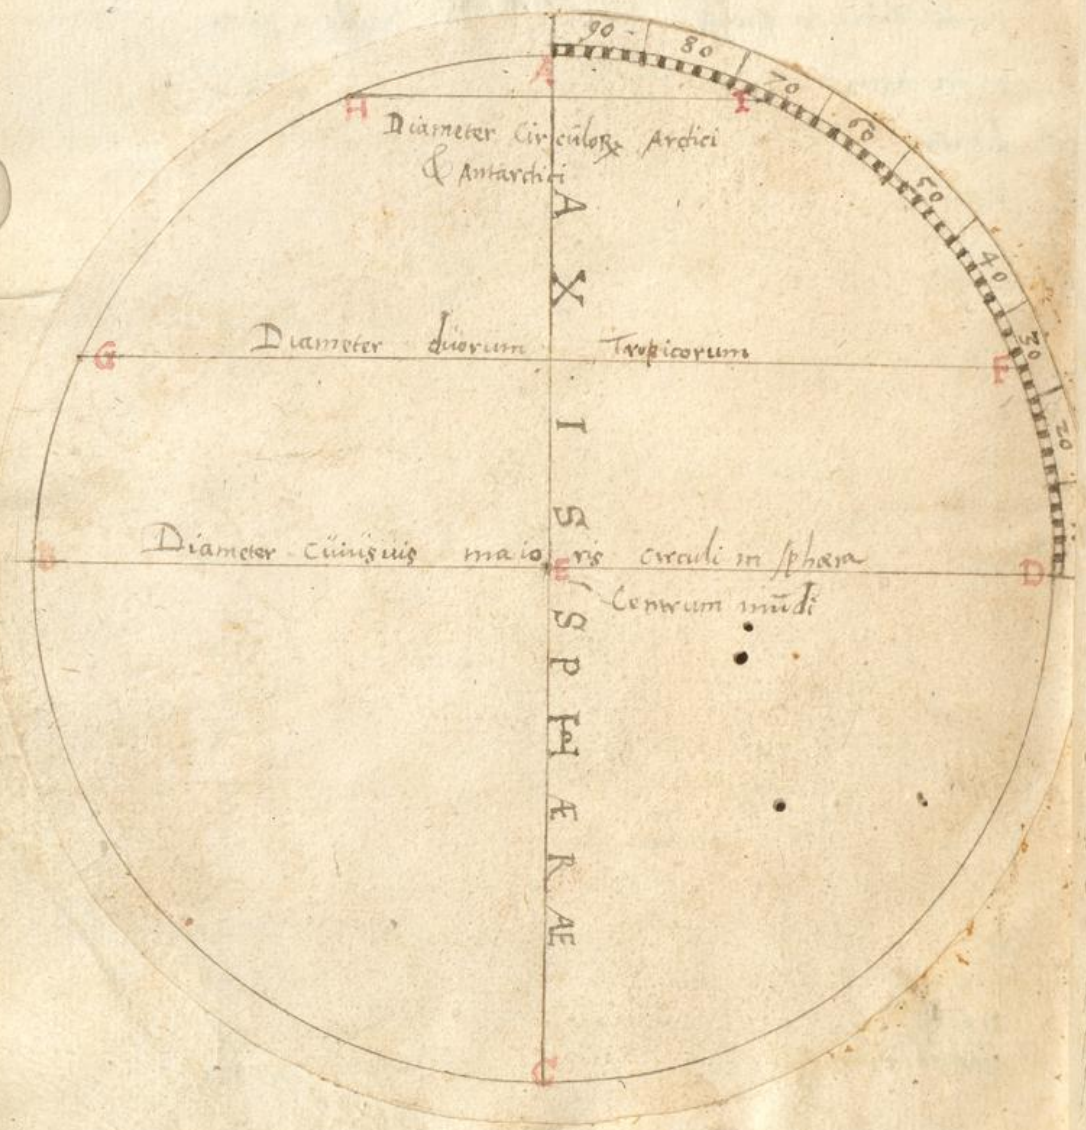 90
80
70
60
50
40
30
20
A
H
I
Diameter Circulorꝝ Arctici
& Antarctici
AXIS SPHÆRAE
G
Diameter duorum Tropicorum
F
B
Diameter cuiusuis maioris circuli in sphæra
E
D
Centrum mūdi
C